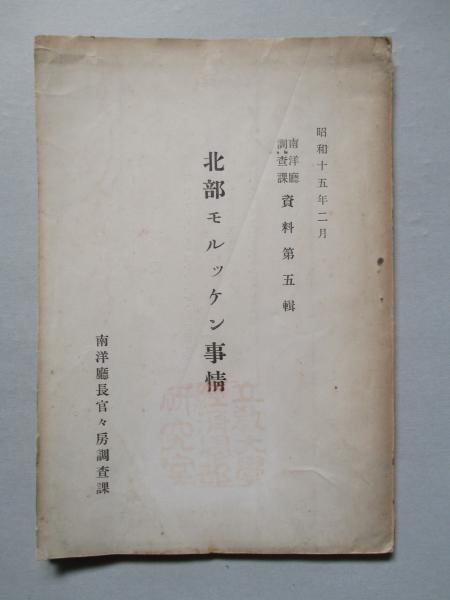 昭和十五年二月
南洋廳調査課資料第五輯
北部モルッケン事情
南洋廳長官々房調査課
立教大學
經濟學部
研究室